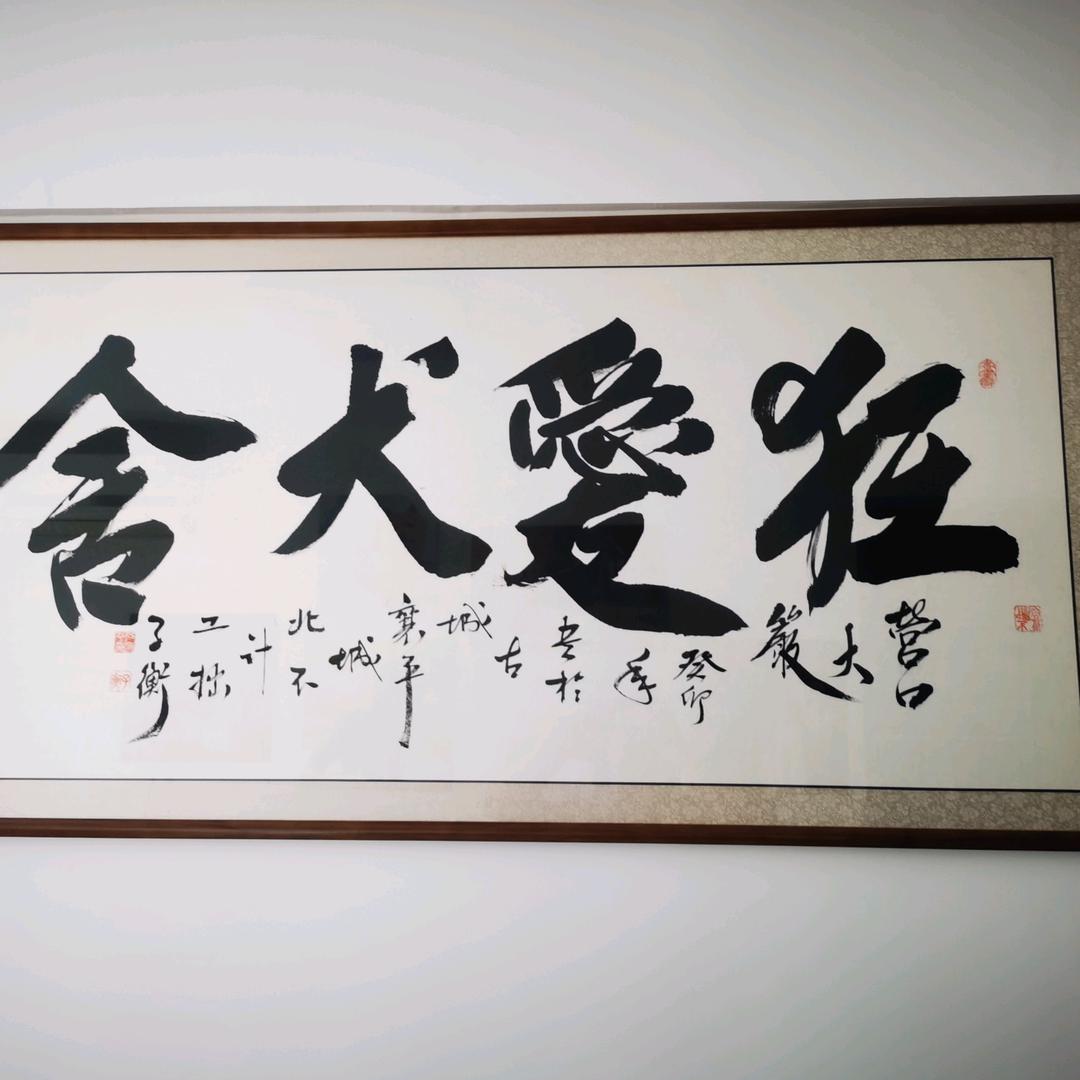 狂愛犬舍
營口大嚴癸卯年書於古城襄平城北不計工拙子衡